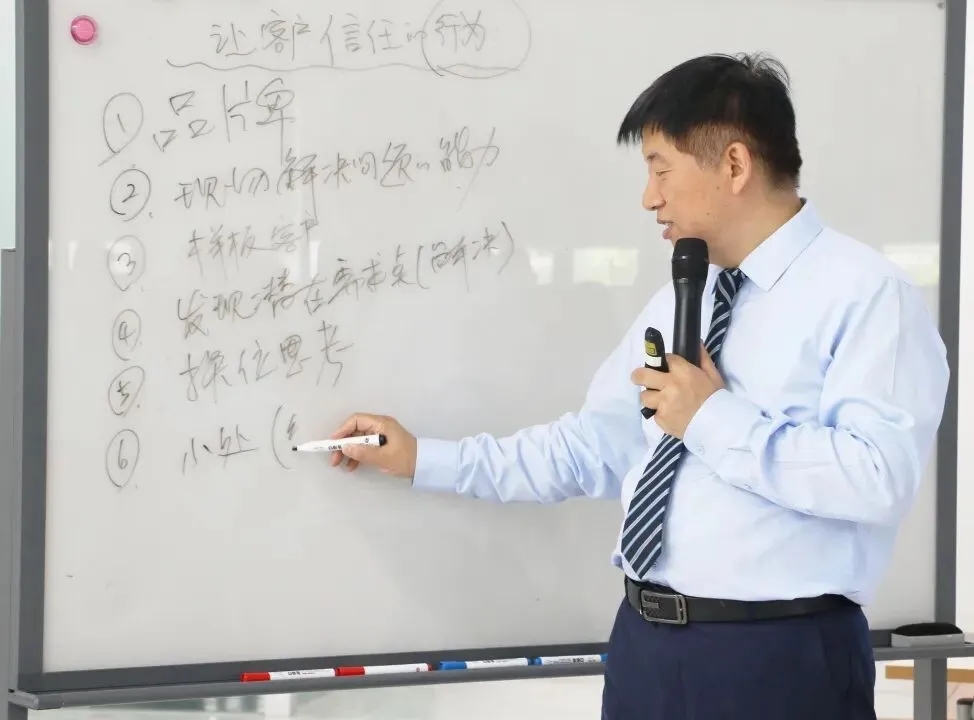 让客户信任的行为
① 品牌
② 现场解决问题的能力
③ 样板客户
④ 发现潜在需求点(解决)
⑤ 换位思考
⑥ 小处(